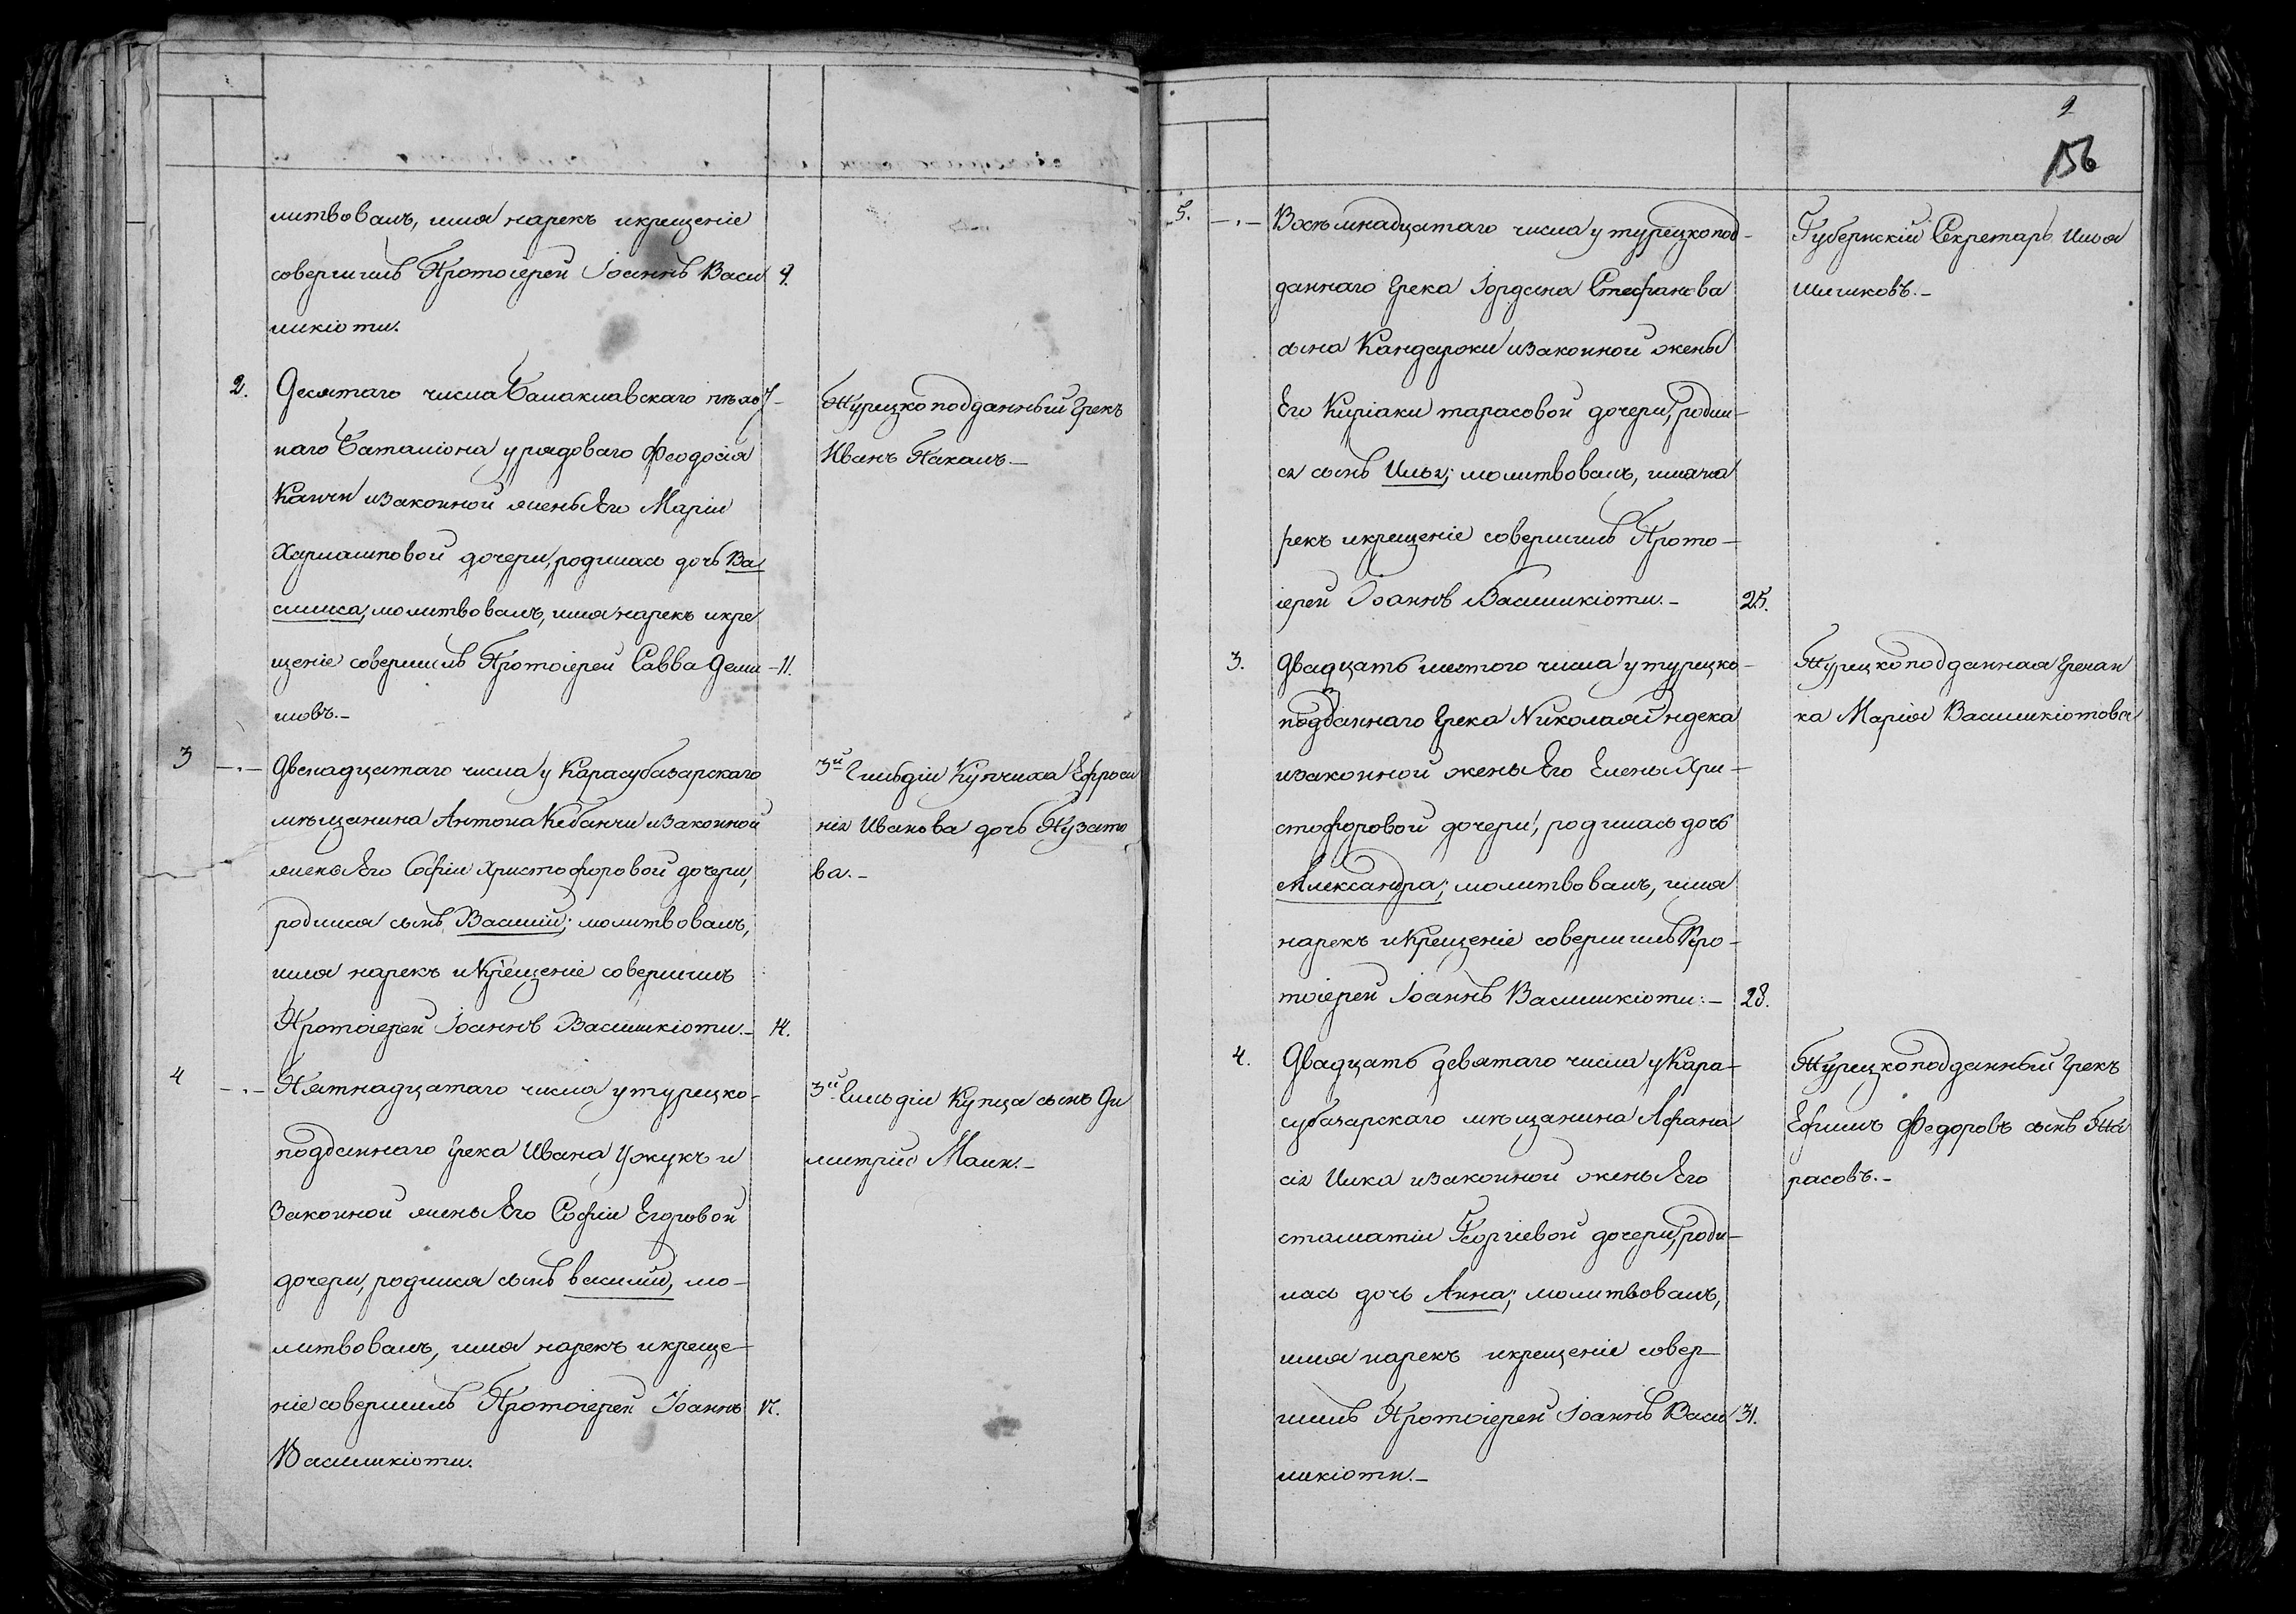 литвовалъ, имя нарекъ икрещеніе
совершилъ Протоіерей Іоаннъ Васи 9.
ликіоти.
2. Десятаго числа Балаклавскаго пѣхо
наго Баталіона урядоваго Феодосія
Капчи изаконной жены Его Маріи
Харламповой дочери, родилась дочь Ва
силиса; молитвовалъ, имя нарекъ икре
щеніе совершилъ Протоіерей Савва Деми 11.
ловъ.
Турецкоподданный Грекъ
Иванъ Пакалъ.
3 Двенадцатаго числа у Карасубазарскаго
мѣщанина Антона Кебанчи изаконной
жены Его Софіи Христофоровой дочери,
родился сынъ Василій; молитвовалъ,
имя нарекъ икрещеніе совершилъ
Протоіерей Іоаннъ Василикіоти. 14.
3й Гильдіи Купчиха Ефроси
нія Иванова дочь Пузато
ва.
4 Пятнадцатаго числа утурецко-
подданнаго Грека Ивана Ужукъ и
Законной жены Его Софіи Егоровой
дочери, родился сынъ василій, мо-
литвовалъ, имя нарекъ икреще-
ніе совершилъ Протоіерей Іоаннъ 17.
Василикіоти.
3й Гильдіи Купца сынъ Ди
митрій Маки.
9
156
5. Восемнадцатаго числа у турецкопод-
даннаго Грека Іордана Стефанова
сына Кандароки изаконной жены
Его Киріаки тарасовой дочери, родил-
ся сынъ Илья; молитвовалъ, имяна
рекъ икрещеніе совершилъ Прото-
іерей Іоаннъ Василикіоти. 25.
Губернскій Секретарь Илья
Шишковъ.
3. Двадцать шестого числа утурецко-
подданнаго Грека Николая Индека
изаконной жены Его Елены Хри-
стофоровой дочери, родилась дочь
Александра; молитвовалъ, имя
нарекъ икрещеніе совершилъ Про-
тоіерей Іоаннъ Василикіоти. 28.
Турецкоподданная Гречан
ка Марія Василикіотова
4. Двадцать девятаго числа у Кара-
субазарскаго мѣщанина Афана
сія Чика изаконной жены Его
стаматіи Георгіевой дочери, роди-
лась дочь Анна; молитвовалъ,
имя нарекъ икрещеніе совер-
шилъ Протоіерей Іоаннъ Васи 31.
ликіоти.
Турецкоподданный Грекъ
Ефимъ Федоровъ сынъ Та
расовъ.